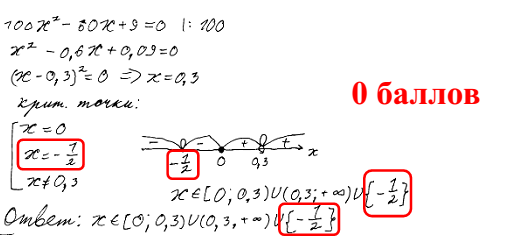 100x² - 60x + 9 = 0 |: 100
x² - 0,6x + 0,09 = 0
(x - 0,3)² = 0 => x = 0,3
0 баллов
крит. точки:
x = 0
x = - 1/2
x ≠ 0,3
- - + +
- 1/2 0 0,3 x
x ∈ [0; 0,3) ∪ (0,3; +∞) ∪ {- 1/2}
Ответ: x ∈ [0; 0,3) ∪ (0,3, +∞) ∪ {- 1/2}